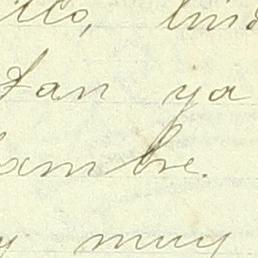 illo, lind
tan ya
ambre.
y muy